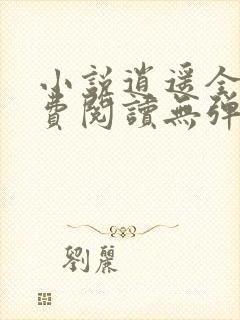 小說逍遥全
費閱讀無彈
劉麗